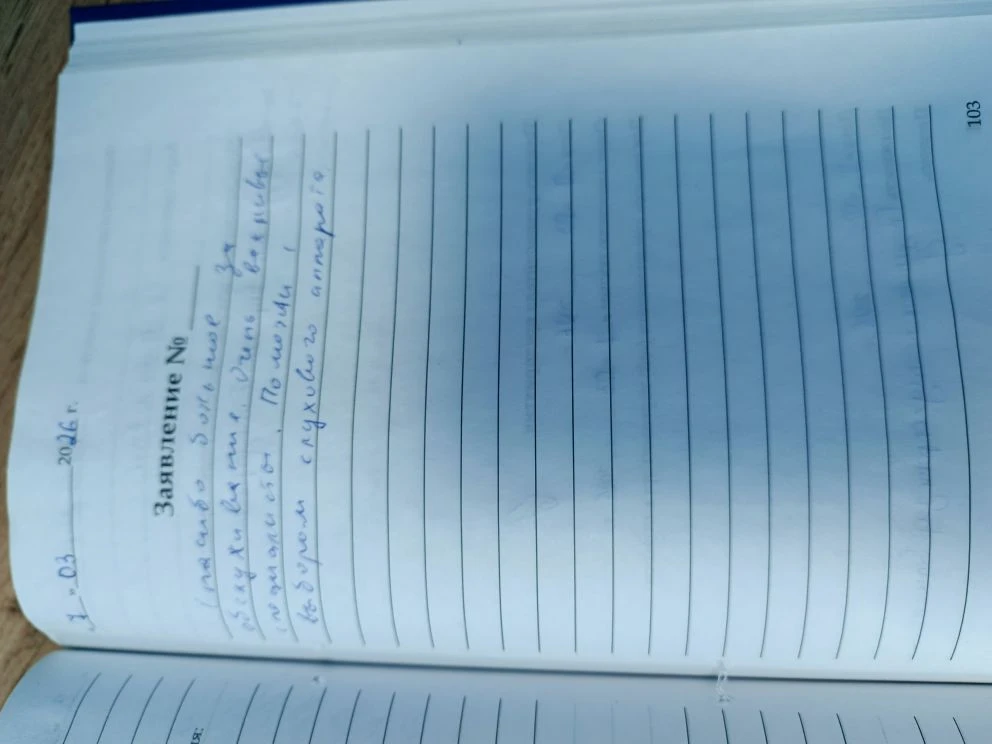 " 03 2026 г.
Заявление № ____
Спасибо большое за
обслуживание. Очень вежливые
специалисты. Помогли с
выбором слухового аппарата
103